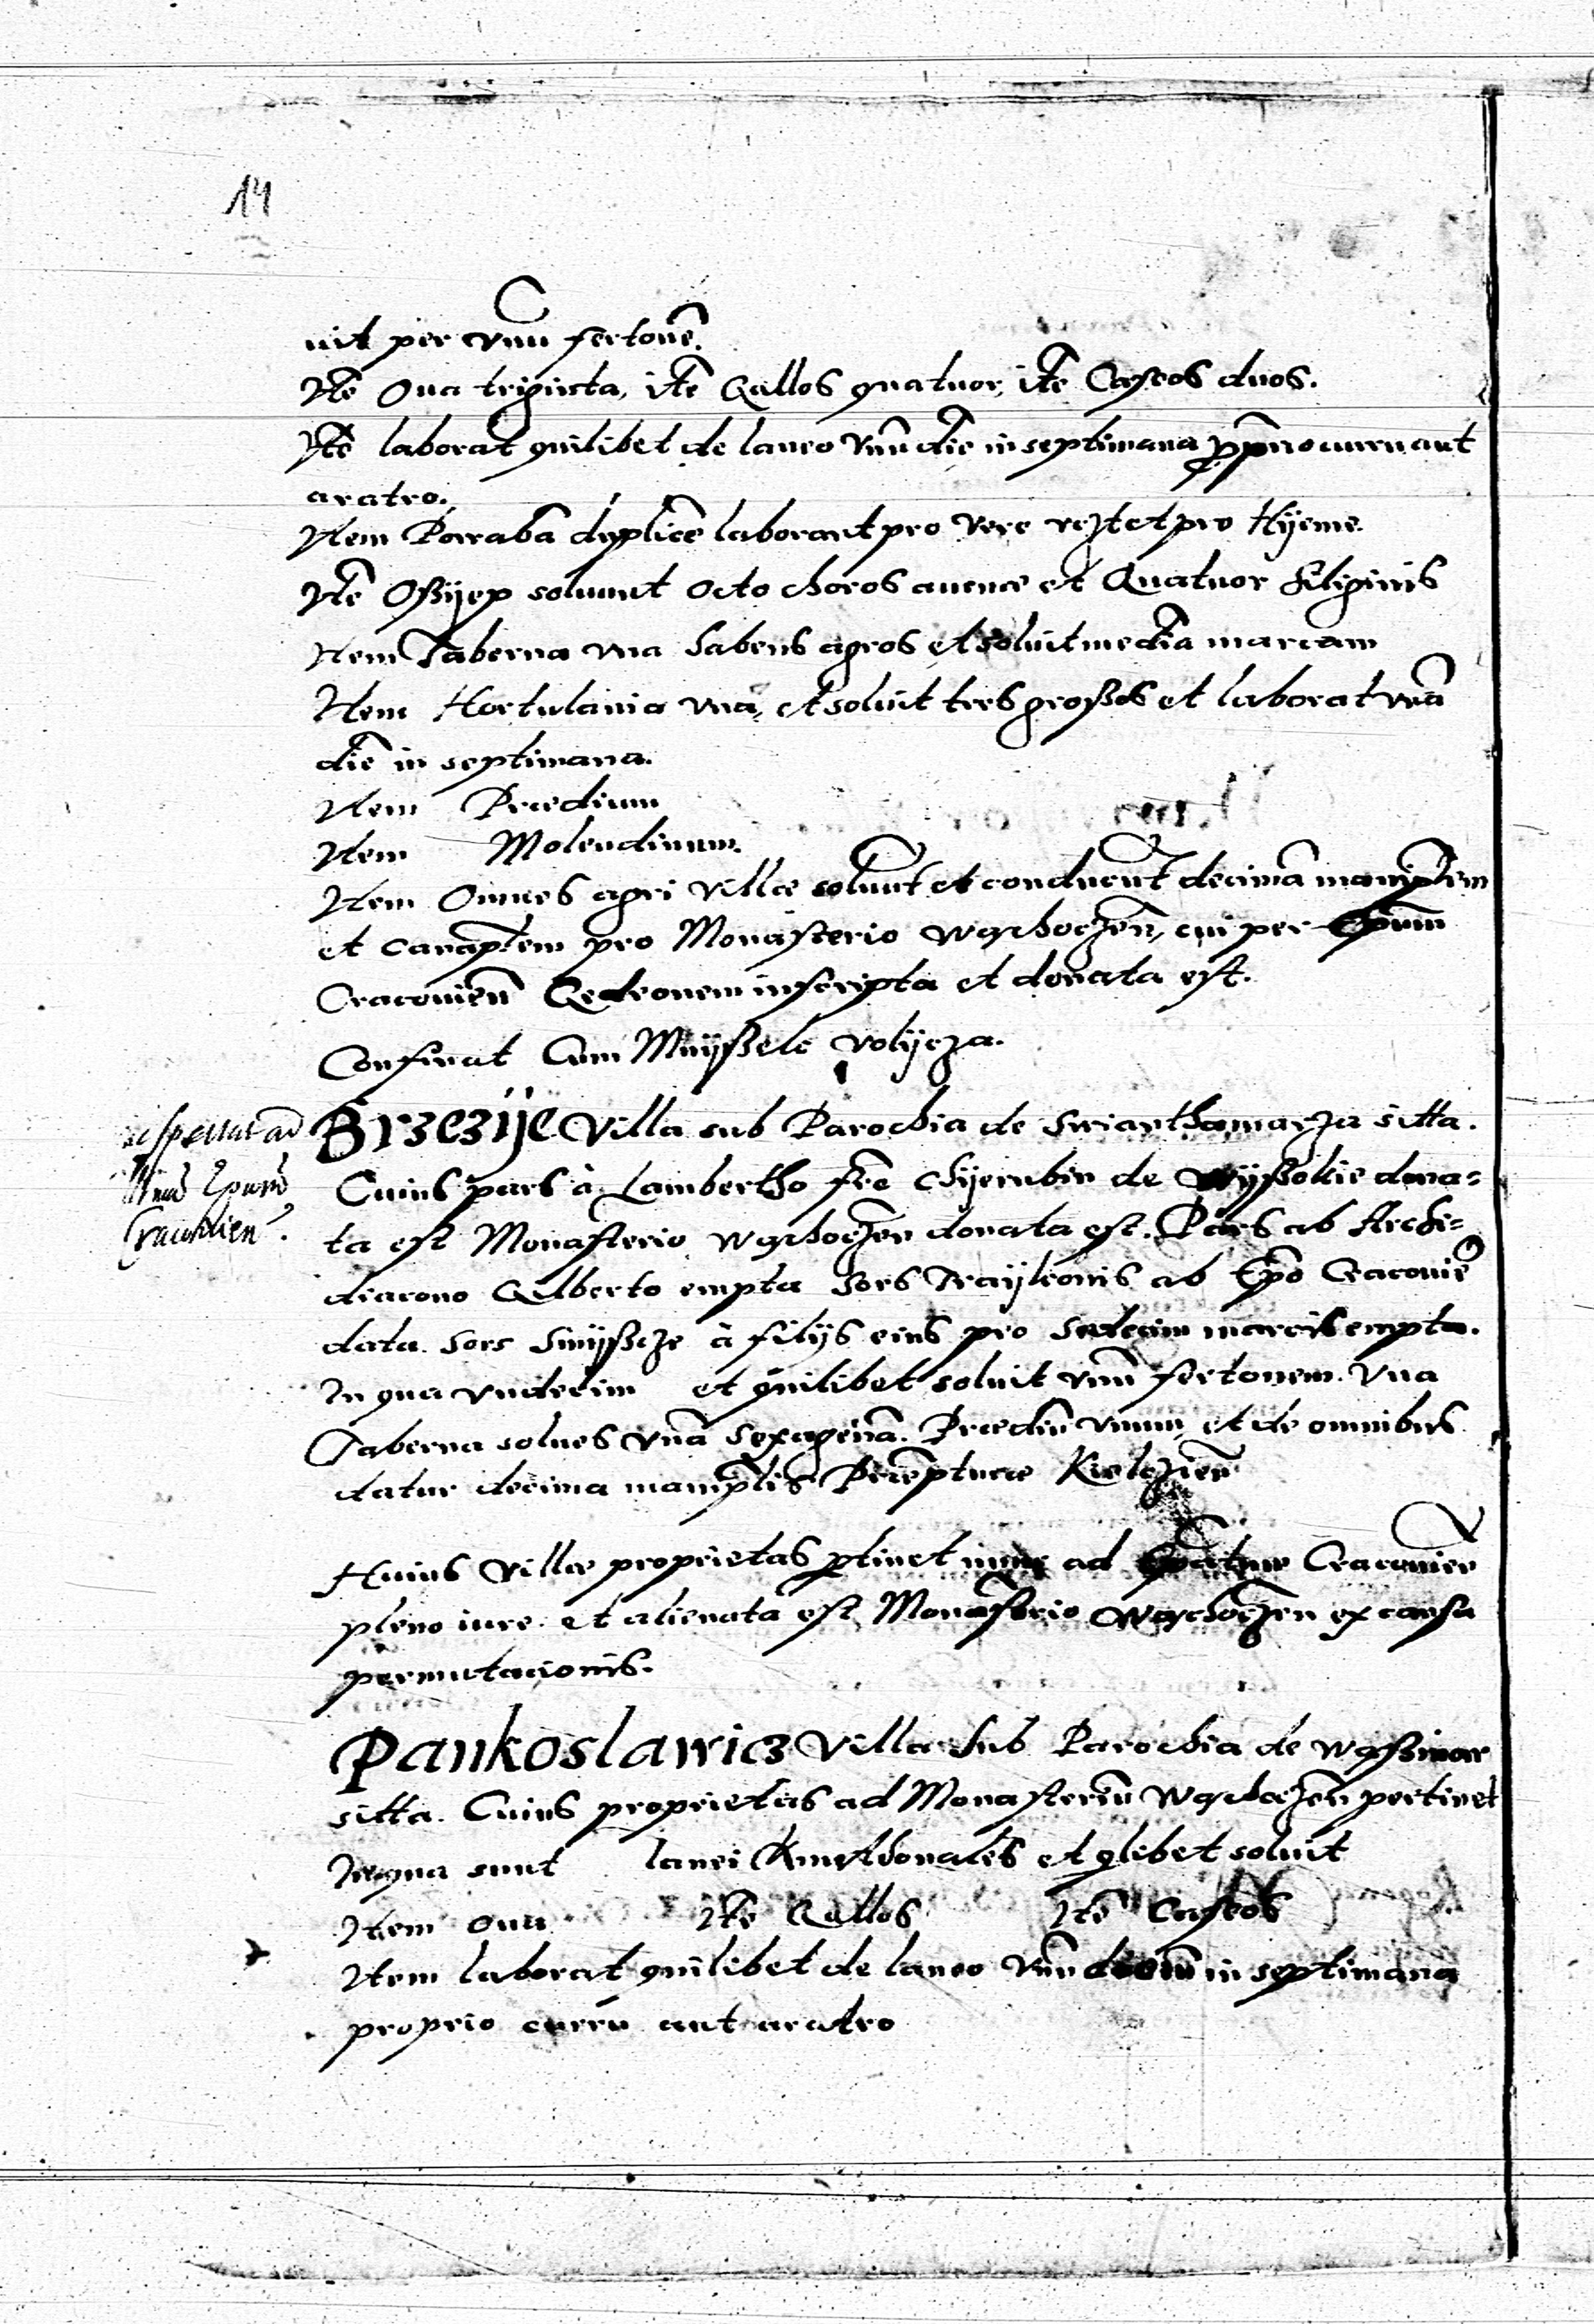 14
uit per vnu fertonē.
Itē Oua triginta, itē Gallos quatuor, itē Caseos duos.
Itē laborat quilibet de laneo vnū diē in septimana pprio curru aut
aratro.
Item Porabā duplicē laborant pro vere vczt et pro Hyeme.
Itē Ossyep soluunt octo choros auenæ et Quatuor siliginis
Item Taberna vna habens agros et soluit mediā marcam
Item Hortulania vna, et soluit tres grossos et laborat vnā
diē in septimana.
Item Prædium
Item Molendinum.
Item Omnes agri villæ soluūt et conducūt decimā manip̄lem
et canap̄lem pro Monasterio wąchoczēn, cui per Ep̄um
Cracouien̄ Gedeonem inscripta et donata est.
Confinat Cum Mnyssek volycza.
spectat ad
Epūm
Cracouien̄.
Brzezije Villa sub Parochia de Swianthamarza sitta.
Cuius pars à Lambertho frē Chyerubin de Wyssokie dona-
ta est Monasterio wąchoczen donata est. Pars ab Archi-
diacono Gilberto empta Sors Trayleonis ab Ep̄o Cracouiē
data. Sors Smyssze à filijs eius pro sedecim marcis empta.
In qua vndecim et quilibet soluit vnū fertonem. Vna
Taberna soluēs vnā sexagenā. Prædiū vnum, et de omnibus
datur decima manip̄lis Præp̄turæ Kielczien̄
Huius villæ proprietas ptinet nunc ad Ep̄atum Cracouien
pleno iure. et alienata est Monastrio wąchoczen ex causa
permutacionis.
Pankoslawicz Villa sub Parochia de wąssnior
sitta. Cuius proprietas ad Monasteriū Wąchoczēn pertinet
In qua sunt lanei Kmethonales et qlibet soluit
Item oua Itē Gallos Itē Caseos
Item laborat quilibet de laneo vnū diem in septimana
proprio curru aut aratro